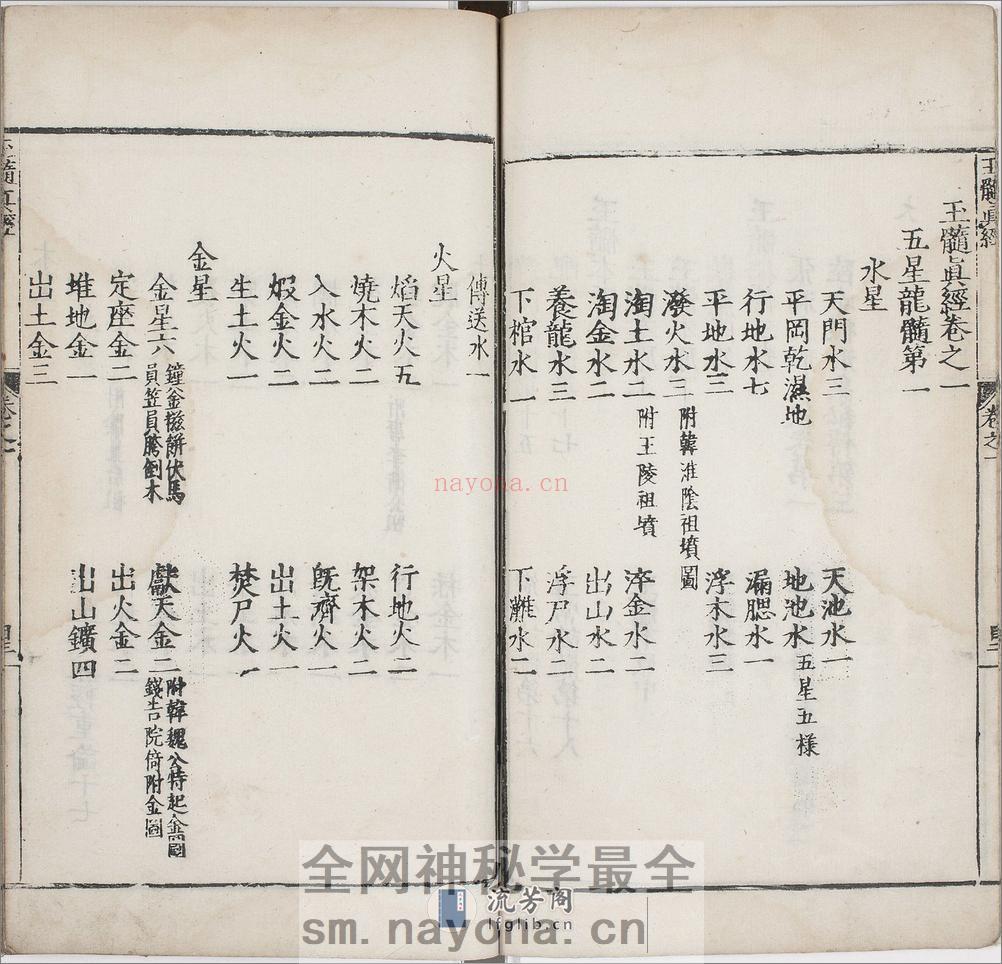 玉髓真經
玉髓真經卷之一
五星龍髓第一
水星
天門水三
天池水一
平岡乾濕地
地池水五星五樣
行地水七
漏腮水一
平地水三
浮木水三
潑火水三附韓淮陰祖墳圖
淘土水二附王陵祖墳
淬金水二
淘金水二
出山水二
養龍水三
浮尸水二
下棺水一
下灘水二
卷之一
傳送水一
火星
焰天火五
行地火二
燒木火二
架木火二
入水火二
既濟火一
煅金火二
出土火一
生土火一
焚尸火一
金星
金星六鐘金 餅伏馬
員笠員騰倒木
獻天金二附韓魏公特起金圖
錢吉院倚附金圖
定座金二
出火金二
堆地金一
出山鑛四
出土金三
玉髓真經
卷之一
nayona.cn
全网神秘学最全
流芳阁
lfglib.cn
sm.nayona.cn